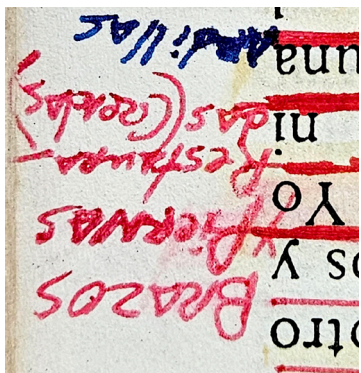 otro BRAZOS
os y Y PIERNAS
Yo Restaura-
ni das (Creadas)
una